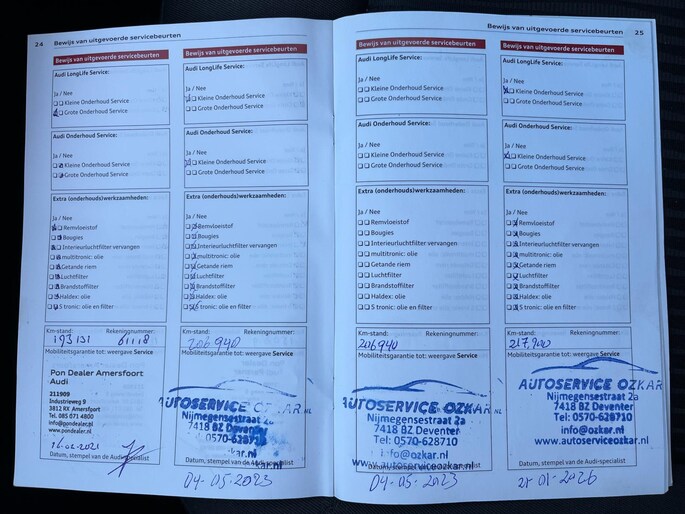 24 Bewijs van uitgevoerde servicebeurten
Bewijs van uitgevoerde servicebeurten
Audi LongLife Service:
Ja / Nee
Kleine Onderhoud Service
Grote Onderhoud Service
Audi Onderhoud Service:
Ja / Nee
Kleine Onderhoud Service
Grote Onderhoud Service
Extra (onderhouds)werkzaamheden:
Ja / Nee
Remvloeistof
Bougies
Interieurluchtfilter vervangen
multitronic: olie
Getande riem
Luchtfilter
Brandstoffilter
Haldex: olie
S tronic: olie en filter
Km-stand: Rekeningnummer:
193131 61118
Mobiliteitsgarantie tot: weergave Service
Pon Dealer Amersfoort
Audi
211909
Industrieweg 9
3812 RX Amersfoort
Tel. 085 071 4800
info@pondealer.nl
www.pondealer.nl
16-02-2021
Datum, stempel van de Audi-specialist
Bewijs van uitgevoerde servicebeurten
Audi LongLife Service:
Ja / Nee
Kleine Onderhoud Service
Grote Onderhoud Service
Audi Onderhoud Service:
Ja / Nee
Kleine Onderhoud Service
Grote Onderhoud Service
Extra (onderhouds)werkzaamheden:
Ja / Nee
Remvloeistof
Bougies
Interieurluchtfilter vervangen
multitronic: olie
Getande riem
Luchtfilter
Brandstoffilter
Haldex: olie
S tronic: olie en filter
Km-stand: Rekeningnummer:
206940
Mobiliteitsgarantie tot: weergave Service
AUTOSERVICE OZKAR.NL
Nijmegensestraat 2a
7418 BZ Deventer
Tel: 0570-628710
Datum, stempel van de Audi-specialist
04-05-2023
Bewijs van uitgevoerde servicebeurten 25
Bewijs van uitgevoerde servicebeurten
Audi LongLife Service:
Ja / Nee
Kleine Onderhoud Service
Grote Onderhoud Service
Audi Onderhoud Service:
Ja / Nee
Kleine Onderhoud Service
Grote Onderhoud Service
Extra (onderhouds)werkzaamheden:
Ja / Nee
Remvloeistof
Bougies
Interieurluchtfilter vervangen
multitronic: olie
Getande riem
Luchtfilter
Brandstoffilter
Haldex: olie
S tronic: olie en filter
Km-stand: Rekeningnummer:
206940
Mobiliteitsgarantie tot: weergave Service
AUTOSERVICE OZKAR.NL
Nijmegensestraat 2a
7418 BZ Deventer
Tel: 0570-628710
info@ozkar.nl
www.autoserviceozkar.nl
Datum, stempel van de Audi-specialist
04-05-2023
Bewijs van uitgevoerde servicebeurten
Audi LongLife Service:
Ja / Nee
Kleine Onderhoud Service
Grote Onderhoud Service
Audi Onderhoud Service:
Ja / Nee
Kleine Onderhoud Service
Grote Onderhoud Service
Extra (onderhouds)werkzaamheden:
Ja / Nee
Remvloeistof
Bougies
Interieurluchtfilter vervangen
multitronic: olie
Getande riem
Luchtfilter
Brandstoffilter
Haldex: olie
S tronic: olie en filter
Km-stand: Rekeningnummer:
Mobiliteitsgarantie tot: weergave Service
AUTOSERVICE OZKAR.NL
Nijmegensestraat 2a
7418 BZ Deventer
Tel: 0570-628710
info@ozkar.nl
www.autoserviceozkar.nl
Datum, stempel van de Audi-specialist